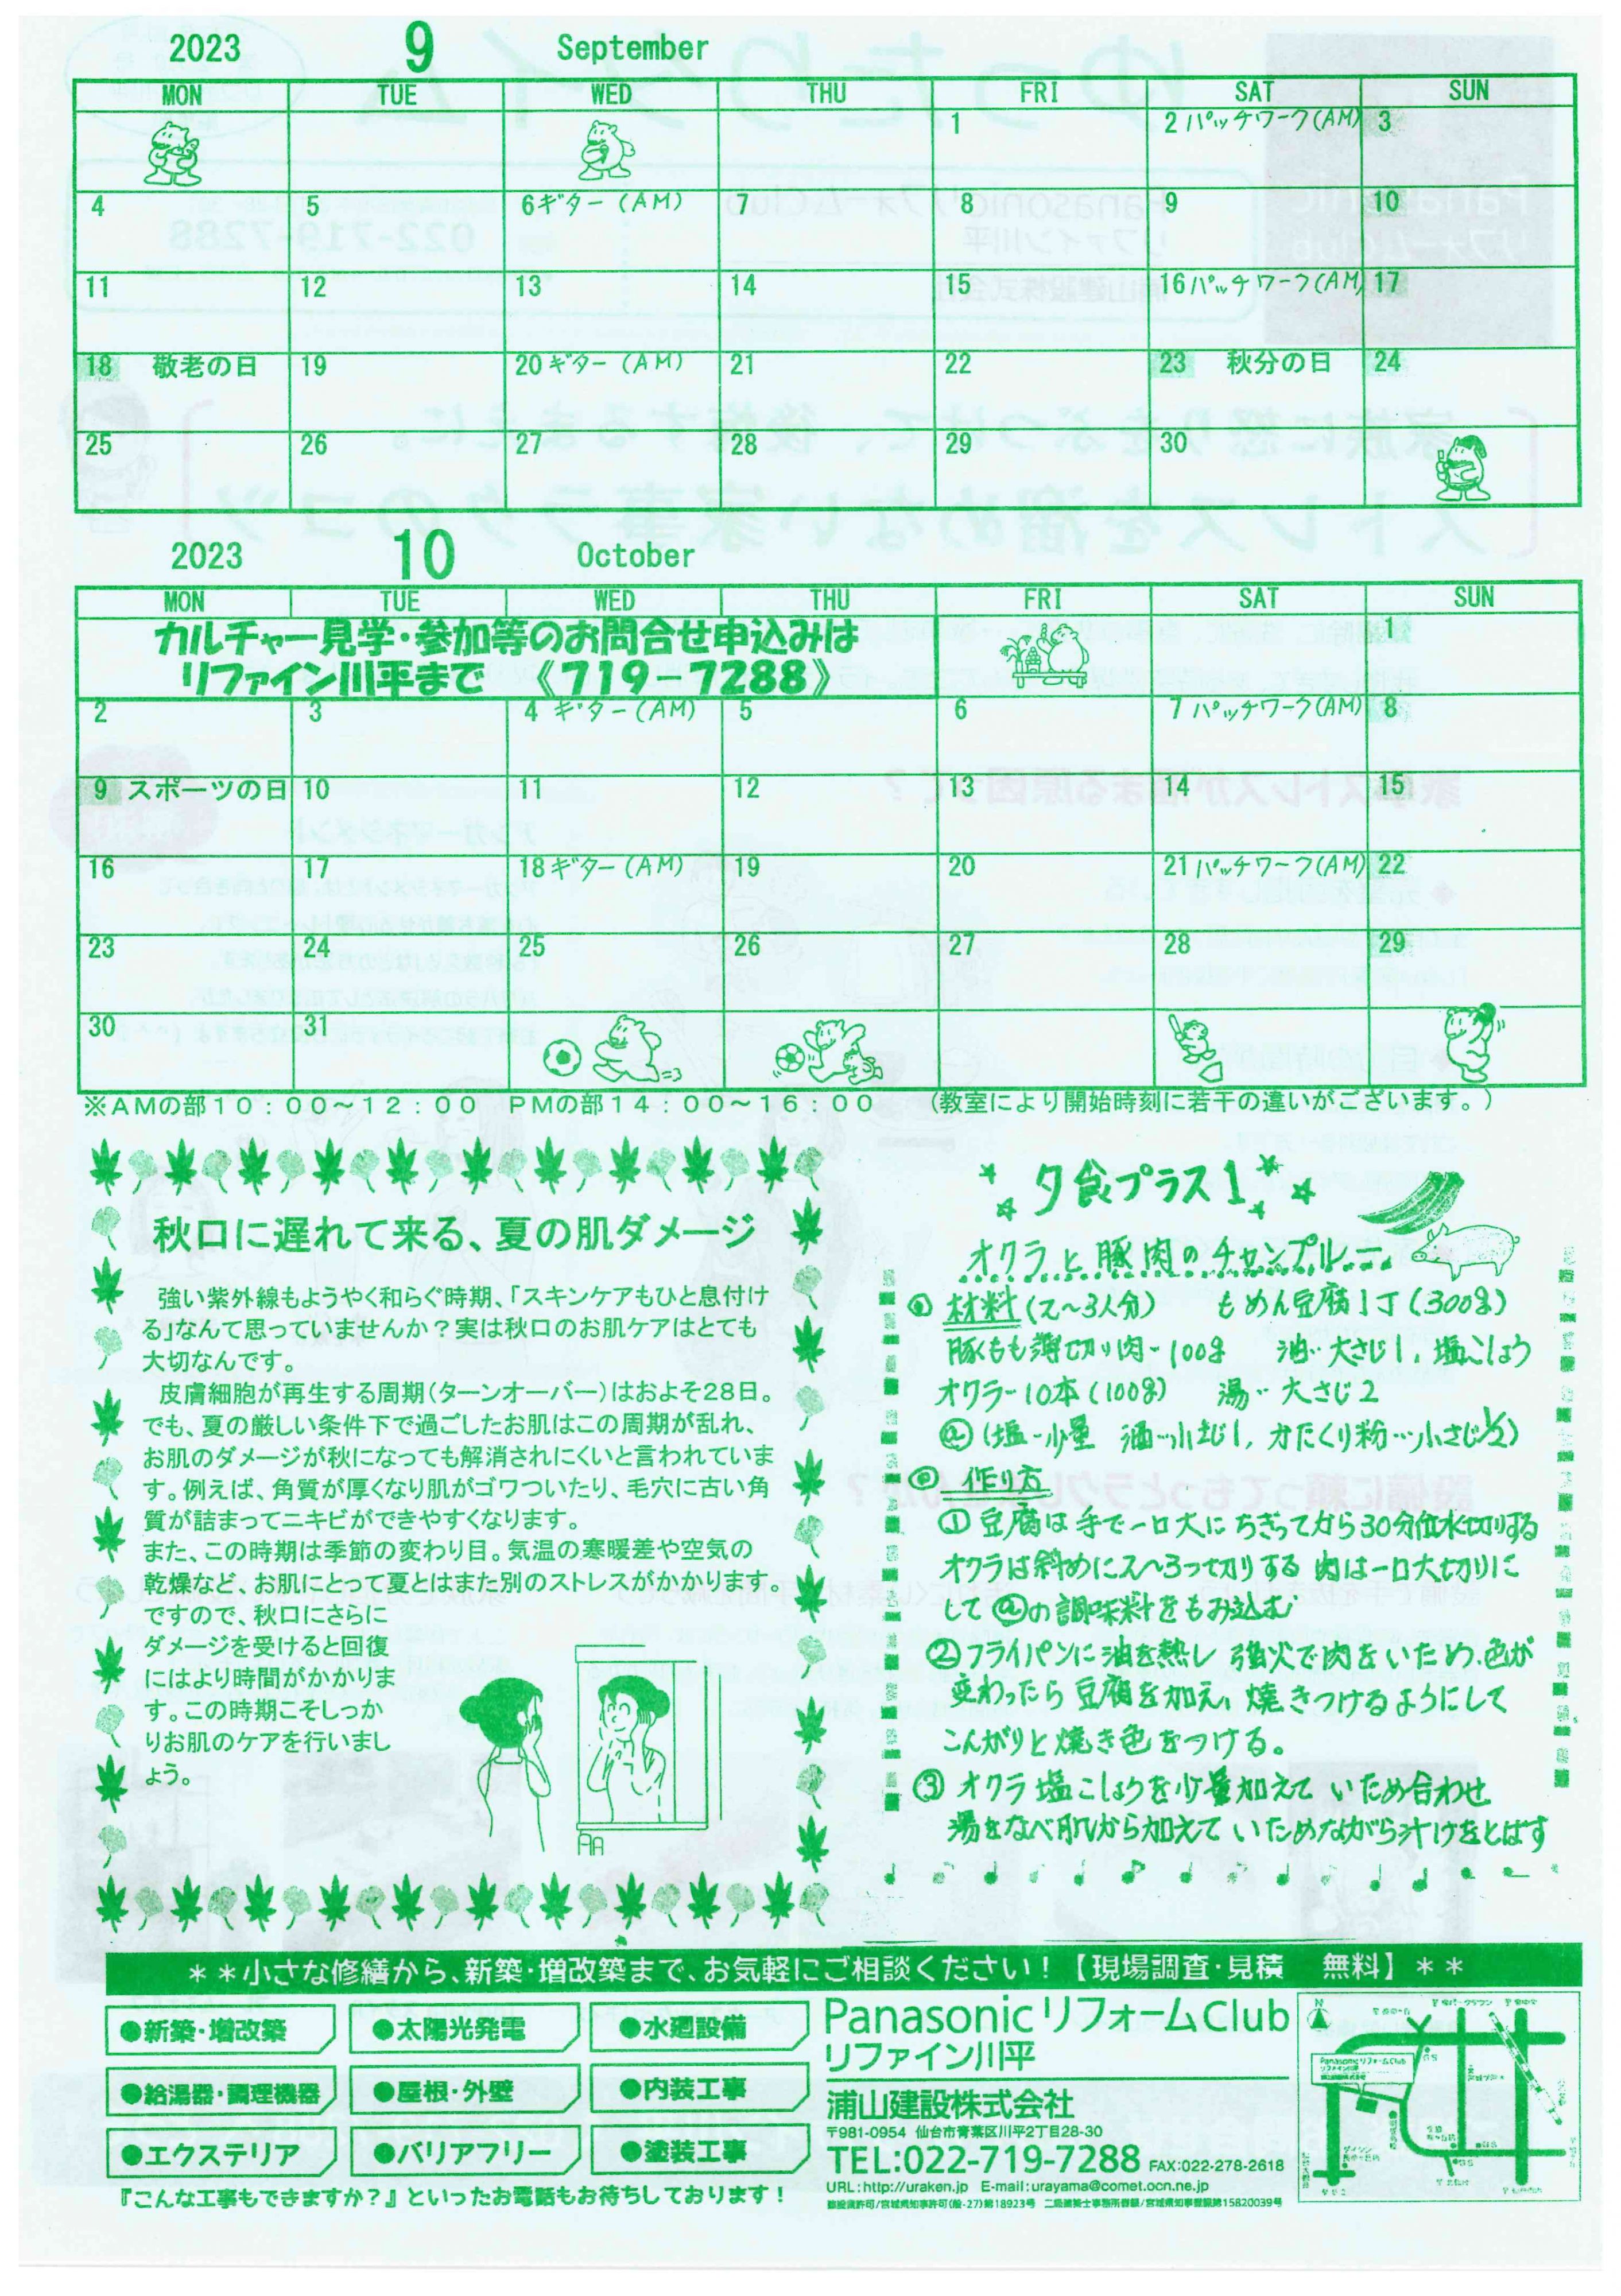 2023 9 September
MON TUE WED THU FRI SAT SUN
1 2 パッチワーク(AM) 3
4 5 6 ギター(AM) 7 8 9 10
11 12 13 14 15 16 パッチワーク(AM) 17
18 敬老の日 19 20 ギター(AM) 21 22 23 秋分の日 24
25 26 27 28 29 30
2023 10 October
MON TUE WED THU FRI SAT SUN
カルチャー見学・参加等のお問合せ申込みは
リファイン川平まで 《719-7288》
1
2 3 4 ギター(AM) 5 6 7 パッチワーク(AM) 8
9 スポーツの日 10 11 12 13 14 15
16 17 18 ギター(AM) 19 20 21 パッチワーク(AM) 22
23 24 25 26 27 28 29
30 31
※AMの部10:00~12:00 PMの部14:00~16:00 (教室により開始時刻に若干の違いがございます。)
秋口に遅れて来る、夏の肌ダメージ
強い紫外線もようやく和らぐ時期、「スキンケアもひと息付け
る」なんて思っていませんか?実は秋口のお肌ケアはとても
大切なんです。
皮膚細胞が再生する周期(ターンオーバー)はおよそ28日。
でも、夏の厳しい条件下で過ごしたお肌はこの周期が乱れ、
お肌のダメージが秋になっても解消されにくいと言われていま
す。例えば、角質が厚くなり肌がゴワついたり、毛穴に古い角
質が詰まってニキビができやすくなります。
また、この時期は季節の変わり目。気温の寒暖差や空気の
乾燥など、お肌にとって夏とはまた別のストレスがかかります。
ですので、秋口にさらに
ダメージを受けると回復
にはより時間がかかりま
す。この時期こそしっか
りお肌のケアを行いまし
ょう。
夕食プラス1
オクラと豚肉のチャンプルー
材料(2~3人分) もめん豆腐1丁(300g)
豚もも薄切り肉…100g 油…大さじ1、塩こしょう
オクラ…10本(100g) 湯…大さじ2
ⓐ(塩…少量 酒…小さじ1、かたくり粉…小さじ1/2)
作り方
① 豆腐は手で一口大にちぎってから30分位水切りする
オクラは斜めに2~3つ切りする 肉は一口大切りに
して ⓐの調味料をもみ込む
② フライパンに油を熱し 強火で肉をいため、色が
変わったら豆腐を加え、焼きつけるようにして
こんがりと焼き色をつける。
③ オクラ 塩こしょうを少量加えて いため合わせ
湯をなべ肌から加えて いためながら汁けをとばす
**小さな修繕から、新築・増改築まで、お気軽にご相談ください!【現場調査・見積 無料】**
●新築・増改築 ●太陽光発電 ●水廻設備
●給湯器・調理機器 ●屋根・外壁 ●内装工事
●エクステリア ●バリアフリー ●塗装工事
『こんな工事もできますか?』といったお電話もお待ちしております!
Panasonic リフォームClub
リファイン川平
浦山建設株式会社
〒981-0954 仙台市青葉区川平2丁目28-30
TEL:022-719-7288 FAX:022-278-2618
URL:http://uraken.jp E-mail:urayama@comet.ocn.ne.jp
建設業許可/宮城県知事許可(般-27)第18923号 二級建築士事務所登録/宮城県知事登録第15820039号
N
Panasonic リフォームClub